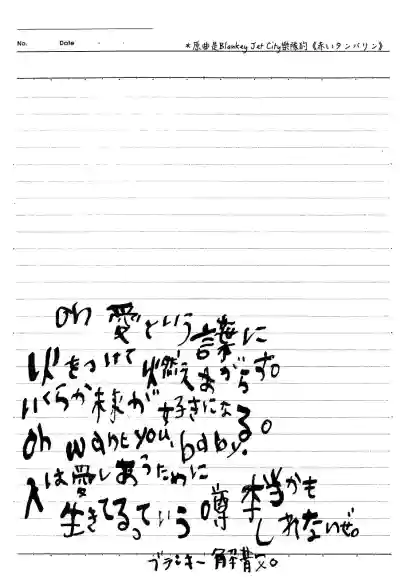 No. Date ・ ・
*原曲是Blankey Jet City樂隊的《赤いタンバリン》
oh 愛という言葉に
火をつけて燃えあがらす。
いくらか未来が好きになる。
Oh want you, baby.
人は愛しあうために
生きてるっていう噂 本当かも
しれないぜ。
ブランキー解散